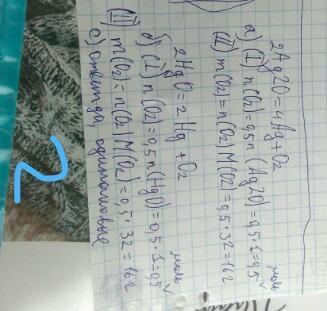 2Ag2O=4Ag+O2
а) (i) n(O2)=0,5n(Ag2O)=0,5·1=0,5 моль
(ii) m(O2)=n(O2)M(O2)=0,5·32=16г
2HgO=2Hg+O2
б) (i) n(O2)=0,5n(HgO)=0,5·1=0,5 моль
(ii) m(O2)=n(O2)M(O2)=0,5·32=16г
с) ответ: да, одинаковые
2